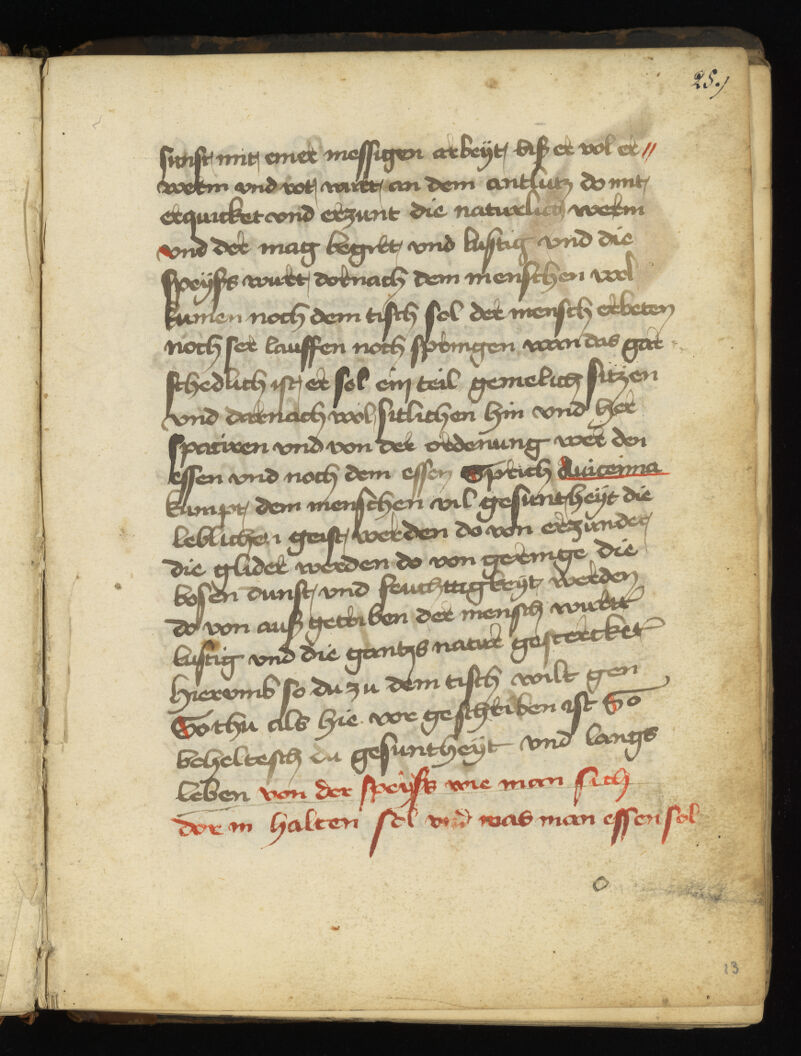 25.
sunst mit einer messigen arbeyt biß er vol er//
werm und rot wirt an dem antlutz do mit
erquicket und erzunt die naturlich werm
und der mag begirt und lustig und die
speyss wirt dornach dem menschen wol
kumen noch dem tisch sol der mensch erbeten
noch ser lauffen noch springen wan das gar
schedlich ist er sol ein teil gemelich sitzen
und darnach wol sitlichen hin und her
spatiren und von der ordenung wer den
essen und noch dem essen Sprich Auicenna
kumpt dem menschen vil gesuntheyt die
leblichen geist werden do von erzundet
die glider werden do von geringe die
bosen dunst und feuchttigkeyt werden
do von auß getriben der mensch wirtt
lustig und die gantzs natur gestercket
hierumb so du zu dem tisch wilt gen
So thu als hie vor geschriben ist So
beheltesch du gesuntheyt und langs
leben von der speyss wie man sich
dor in halten sol und was man essen sol
13